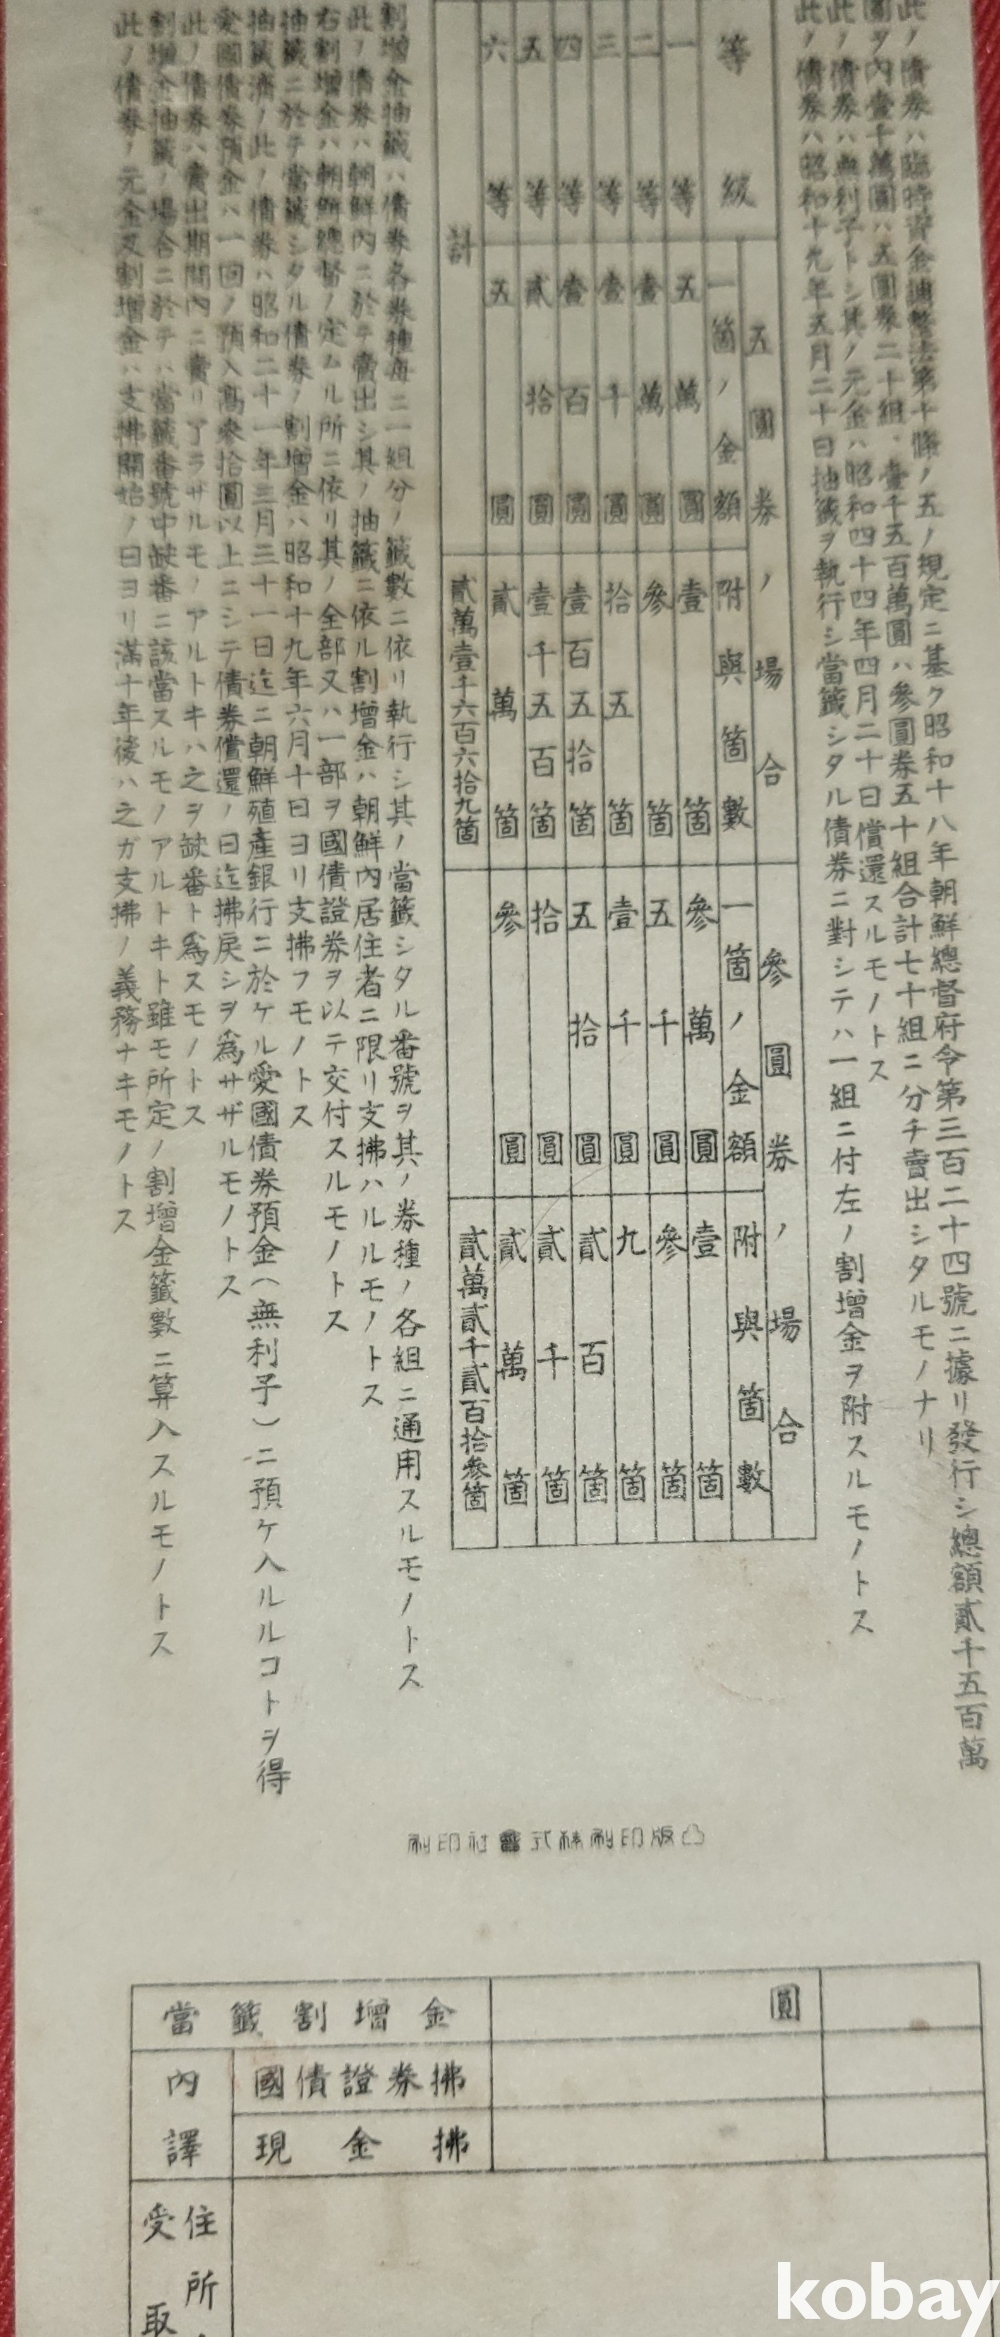 此ノ債券ハ臨時資金調整法第十條ノ五ノ規定ニ基ク昭和十八年朝鮮總督府令第三百二十四號ニ據リ發行シ總額貳千五百萬
圓ヲ內壹千萬圓ハ五圓券二十組、壹千五百萬圓ハ參圓券五十組合計七十組ニ分チ賣出シタルモノナリ
此ノ債券ハ無利子トシ其ノ元金ハ昭和四十四年四月二十日償還スルモノトス
此ノ債券ハ昭和十九年五月二十日抽籤ヲ執行シ當籤シタル債券ニ對シテハ一組ニ付左ノ割增金ヲ附スルモノトス
等級 五圓券ノ場合 參圓券ノ場合
一箇ノ金額 附與箇數 一箇ノ金額 附與箇數
一等 五萬圓 壹箇 參萬圓 壹箇
二等 壹萬圓 參箇 五千圓 參箇
三等 壹千圓 拾五箇 壹千圓 九箇
四等 壹百圓 壹百五拾箇 五拾圓 貳百箇
五等 貳拾圓 壹千五百箇 拾圓 貳千箇
六等 五圓 貳萬箇 參圓 貳萬箇
計 貳萬壹千六百六拾九箇 貳萬貳千貳百拾參箇
割增金抽籤ハ債券各券種每ニ一組分ノ籤數ニ依リ執行シ其ノ當籤シタル番號ヲ其ノ券種ノ各組ニ通用スルモノトス
此ノ債券ハ朝鮮內ニ於テ賣出シ其ノ抽籤ニ依ル割增金ハ朝鮮內居住者ニ限リ支拂ハルルモノトス
右割增金ハ朝鮮總督ノ定ムル所ニ依リ其ノ全部又ハ一部ヲ國債證券ヲ以テ交付スルモノトス
抽籤ニ於テ當籤シタル債券ノ割增金ハ昭和十九年六月十日ヨリ支拂フモノトス
抽籤濟ノ此ノ債券ハ昭和二十一年三月三十一日迄ニ朝鮮殖產銀行ニ於ケル愛國債券預金(無利子)ニ預ケ入ルルコトヲ得
愛國債券預金ハ一回ノ預入高參拾圓以上ニシテ債券償還ノ日迄拂戾シヲ爲サザルモノトス
此ノ債券ハ賣出期間內ニ賣リ了ラサルモノアルトキハ之ヲ缺番ト爲スモノトス
割增金抽籤ノ場合ニ於テハ當籤番號中缺番ニ該當スルモノアルトキト雖モ所定ノ割增金籤數ニ算入スルモノトス
此ノ債券ノ元金及割增金ハ支拂開始ノ日ヨリ滿十年後ハ之ガ支拂ノ義務ナキモノトス
刷印社會式株刷印版凸
當籤割增金 圓
內譯 國債證券拂
現金拂
受取
住所
kobay